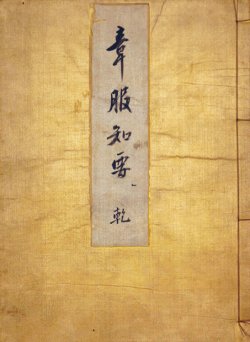 章服知要 乾